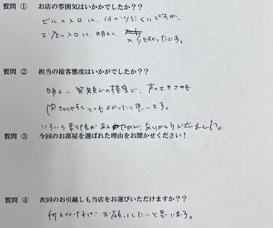 質問 ① お店の雰囲気はいかがでしたか??
ビルの入口は、分かりにくいですが、
お店の入口は、明るく 入りやすかったです。
質問 ② 担当の接客態度はいかがでしたか??
明るい 笑顔での接客で、声の大きさも
聞きやすくとてもよかったと思います。
いろいろ ありがとうございました。
質問 ③ 今回のお部屋を選ばれた理由をお聞かせください!
質問 ④ 次回のお引越しも当店をお選びいただけますか??
何もなければ お願いしたいと思います。